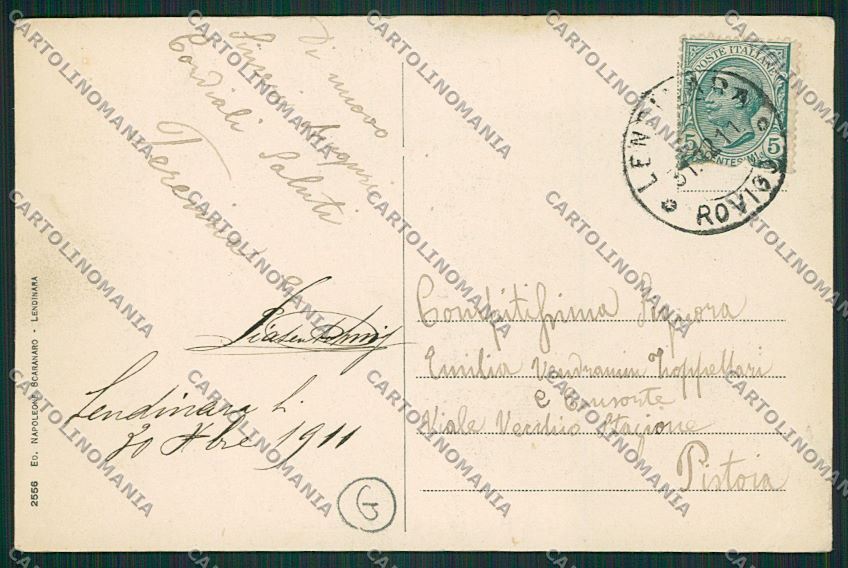 Di nuovo
Sinceri Auguri
Cordiali Saluti
Teresina
Lendinara li
30 Xbre 1911
2556 ED. NAPOLEONE SCARANARO - LENDINARA
POSTE ITALIANE
5 CENTESIMI 5
LENDINARA
11
ROVIGO
Compitissima Signora
Emilia Vendramin Zoppellari
e Consorte
Viale Vecchio Stazione
Pistoia
G
CARTOLINOMANIA